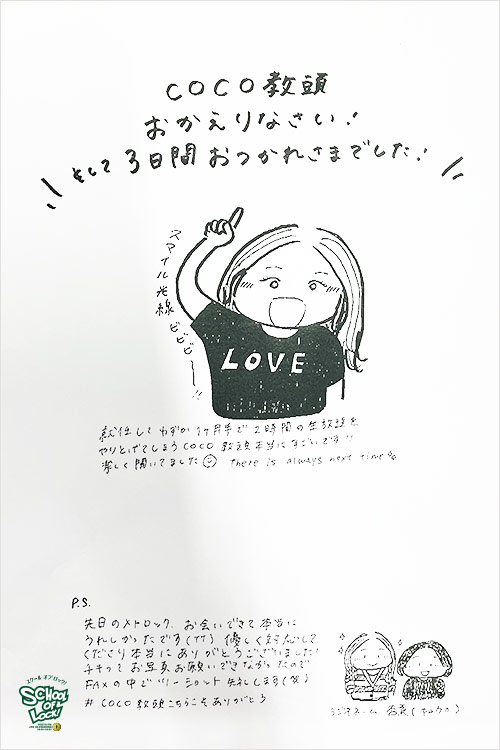 COCO教頭
おかえりなさい!
そして 3日間 おつかれさまでした!
スマイル光線 ビビビ〜!!
LOVE
就任して わずか 1ヶ月半で 2時間の生放送を
やりとげてしまう COCO教頭本当にすごいです!!
楽しく聞いてました there is always next time
P.S.
先日のメトロック、お会いできて本当に
うれしかったです(TT) 優しく対応して
くださり本当にありがとうございました!
チキってお写真お願いできなかったので
FAXの中でツーショット失礼します(笑)
# COCO教頭こちらこそありがとう
ラジオネーム
スクール オブ ロック!
SCHOOL OF LOCK!